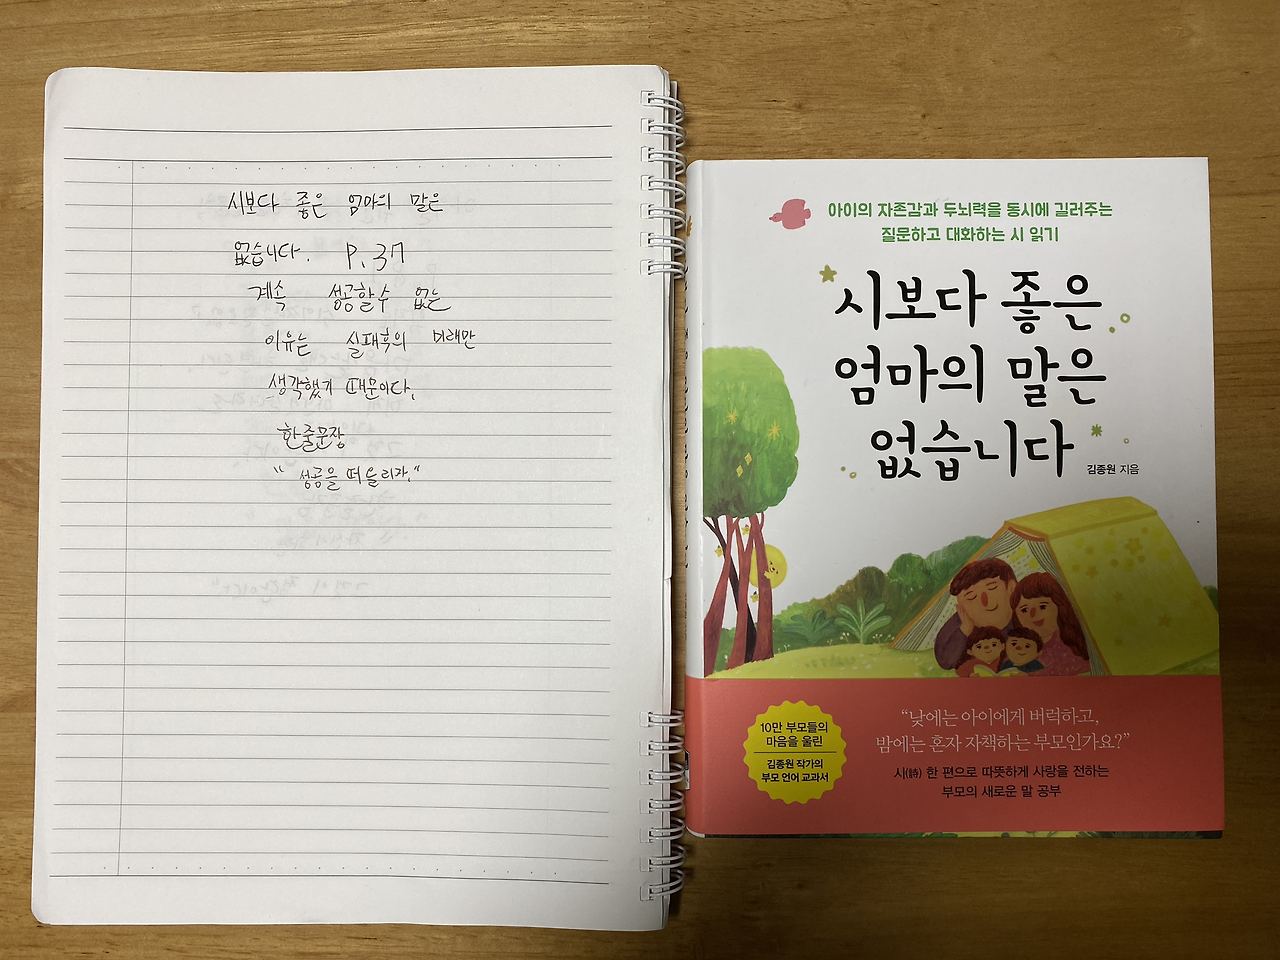 시보다 좋은 엄마의 말은
없습니다. P. 37
계속 성공할수 없는
이유는 실패후의 미래만
생각했기 때문이다.
한줄문장
"성공을 떠올리자."
아이의 자존감과 두뇌력을 동시에 길러주는
질문하고 대화하는 시 읽기
시보다 좋은
엄마의 말은
없습니다
김종원 지음
10만 부모들의
마음을 울린
김종원 작가의
부모 언어 교과서
“낮에는 아이에게 버럭하고,
밤에는 혼자 자책하는 부모인가요?”
시(詩) 한 편으로 따뜻하게 사랑을 전하는
부모의 새로운 말 공부